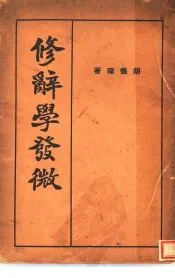 胡懷琛著
修辭學發微